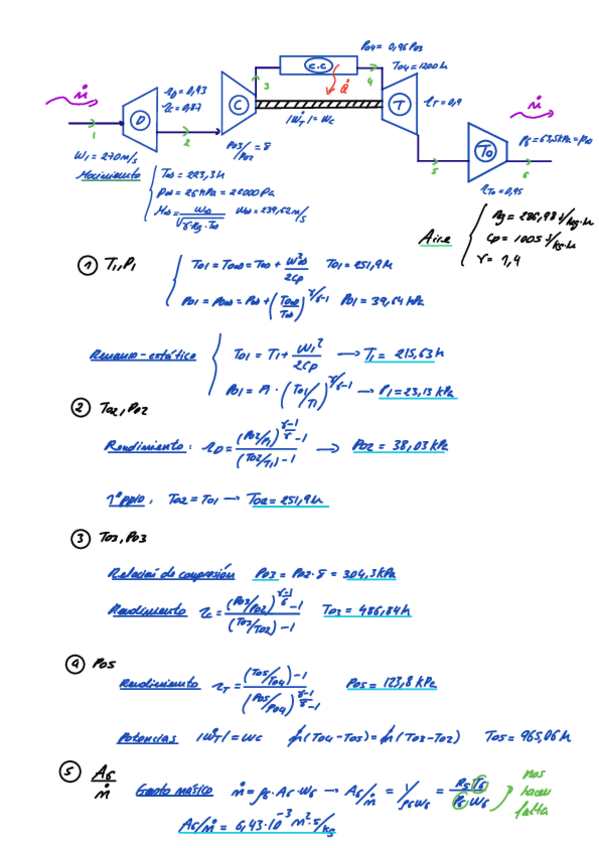 P04 = 0,96 P03
C.C T04 = 1200 K
ṁ ηD = 0,93 3 4 ṁ
ηC = 0,87 C Q̇ T ηT = 0,9
D |ẆT| = WC P6 = 63,5 kPa = P∞
1 2 P03/P02 = 8 T0
W1 = 270 m/s 5 6
Movimiento T∞ = 223,3 K ηT0 = 0,95
P∞ = 26 kPa = 26000 Pa
M∞ = W∞/√γRg·T∞ W∞ = 239,62 m/s
Aire Rg = 286,98 J/kg·K
Cp = 1005 J/kg·K
γ = 1,4
① T1, P1 T01 = T0∞ = T∞ + W∞²/2Cp T01 = 251,9 K
P01 = P0∞ = P∞ + (T0∞/T∞)^γ/γ-1 P01 = 39,64 kPa
Remanso-estático T01 = T1 + W1²/2Cp → T1 = 215,63 K
P01 = P1 · (T01/T1)^γ/γ-1 → P1 = 23,13 kPa
② T02, P02
Rendimiento: ηD = (P02/P1)^γ-1/γ -1 / (T02/T1) -1 → P02 = 38,03 kPa
1º ppio. T02 = T01 → T02 = 251,9 K
③ T03, P03
Relación de compresión P03 = P02 · 8 = 304,3 kPa
Rendimiento ηC = (P03/P02)^γ-1/γ -1 / (T03/T02) -1 T03 = 486,84 K
④ P05
Rendimiento ηT = (T05/T04) -1 / (P05/P04)^γ-1/γ -1 P05 = 123,8 kPa
Potencias |ẆT| = WC ṁ(T04-T05) = ṁ(T03-T02) T05 = 965,06 K
⑤ A6/ṁ Gasto másico ṁ = ρ6 · A6 · W6 → A6/ṁ = 1/ρ6W6 = Rg T6/P6 W6 nos hacen falta
A6/ṁ = 6,43·10⁻³ m²·s/kg